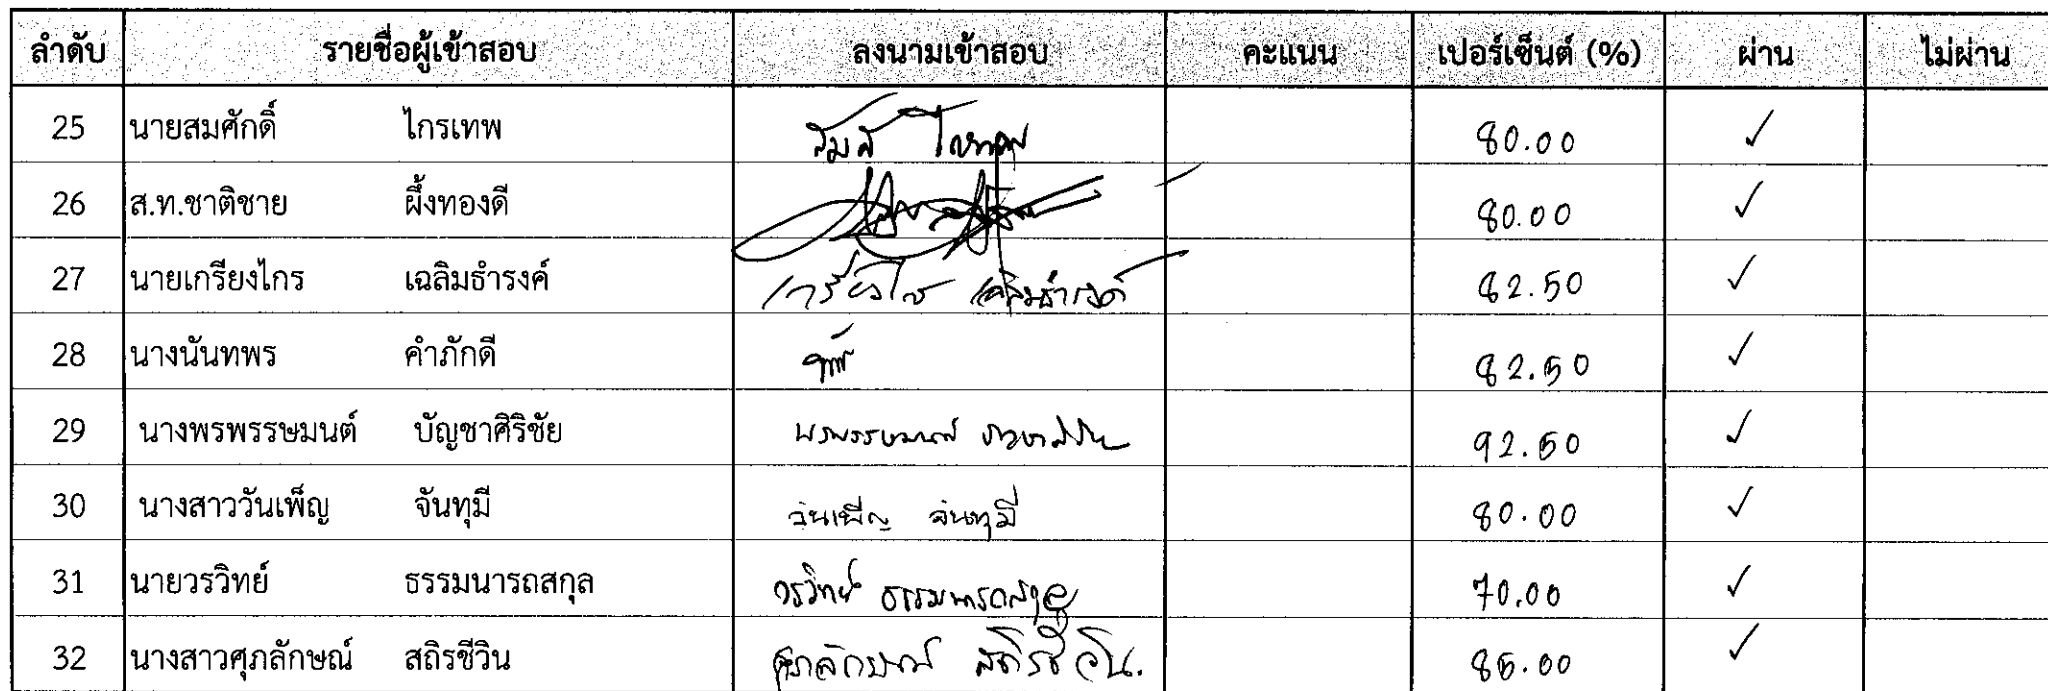 ลำดับ รายชื่อผู้เข้าสอบ ลงนามเข้าสอบ คะแนน เปอร์เซ็นต์ (%) ผ่าน ไม่ผ่าน
25 นายสมศักดิ์ ไกรเทพ 80.00 ✓
26 ส.ท.ชาติชาย ผึ้งทองดี 80.00 ✓
27 นายเกรียงไกร เฉลิมธำรงค์ เกรียงไกร เฉลิมธำรงค์ 82.50 ✓
28 นางนันทพร คำภักดี 82.50 ✓
29 นางพรพรรษมนต์ บัญชาศิริชัย พรพรรษมนต์ 92.50 ✓
30 นางสาววันเพ็ญ จันทุมี วันเพ็ญ จันทุมี 80.00 ✓
31 นายวรวิทย์ ธรรมนารถสกุล วรวิทย์ ธรรมนารถสกุล 70.00 ✓
32 นางสาวศุภลักษณ์ สถิรชีวิน ศุภลักษณ์ สถิรชีวิน. 85.00 ✓